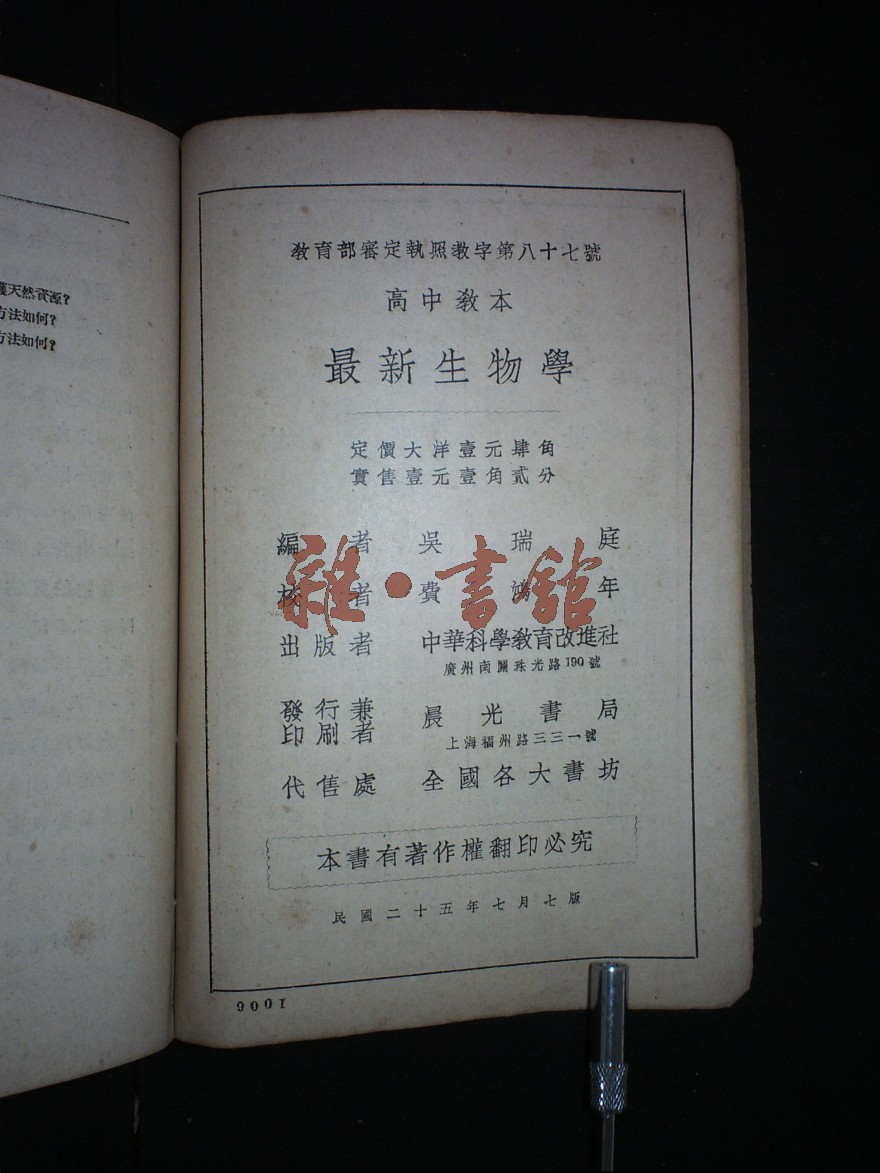 護天然資源?
方法如何?
方法如何?
教育部審定執照教字第八十七號
高中教本
最新生物學
定價大洋壹元肆角
實售壹元壹角貳分
編者 吳瑞庭
校者 費鴻年
雜·書館
出版者 中華科學教育改進社
廣州南關珠光路190號
發行兼
印刷者 晨光書局
上海福州路三三一號
代售處 全國各大書坊
本書有著作權翻印必究
民國二十五年七月七版
9001